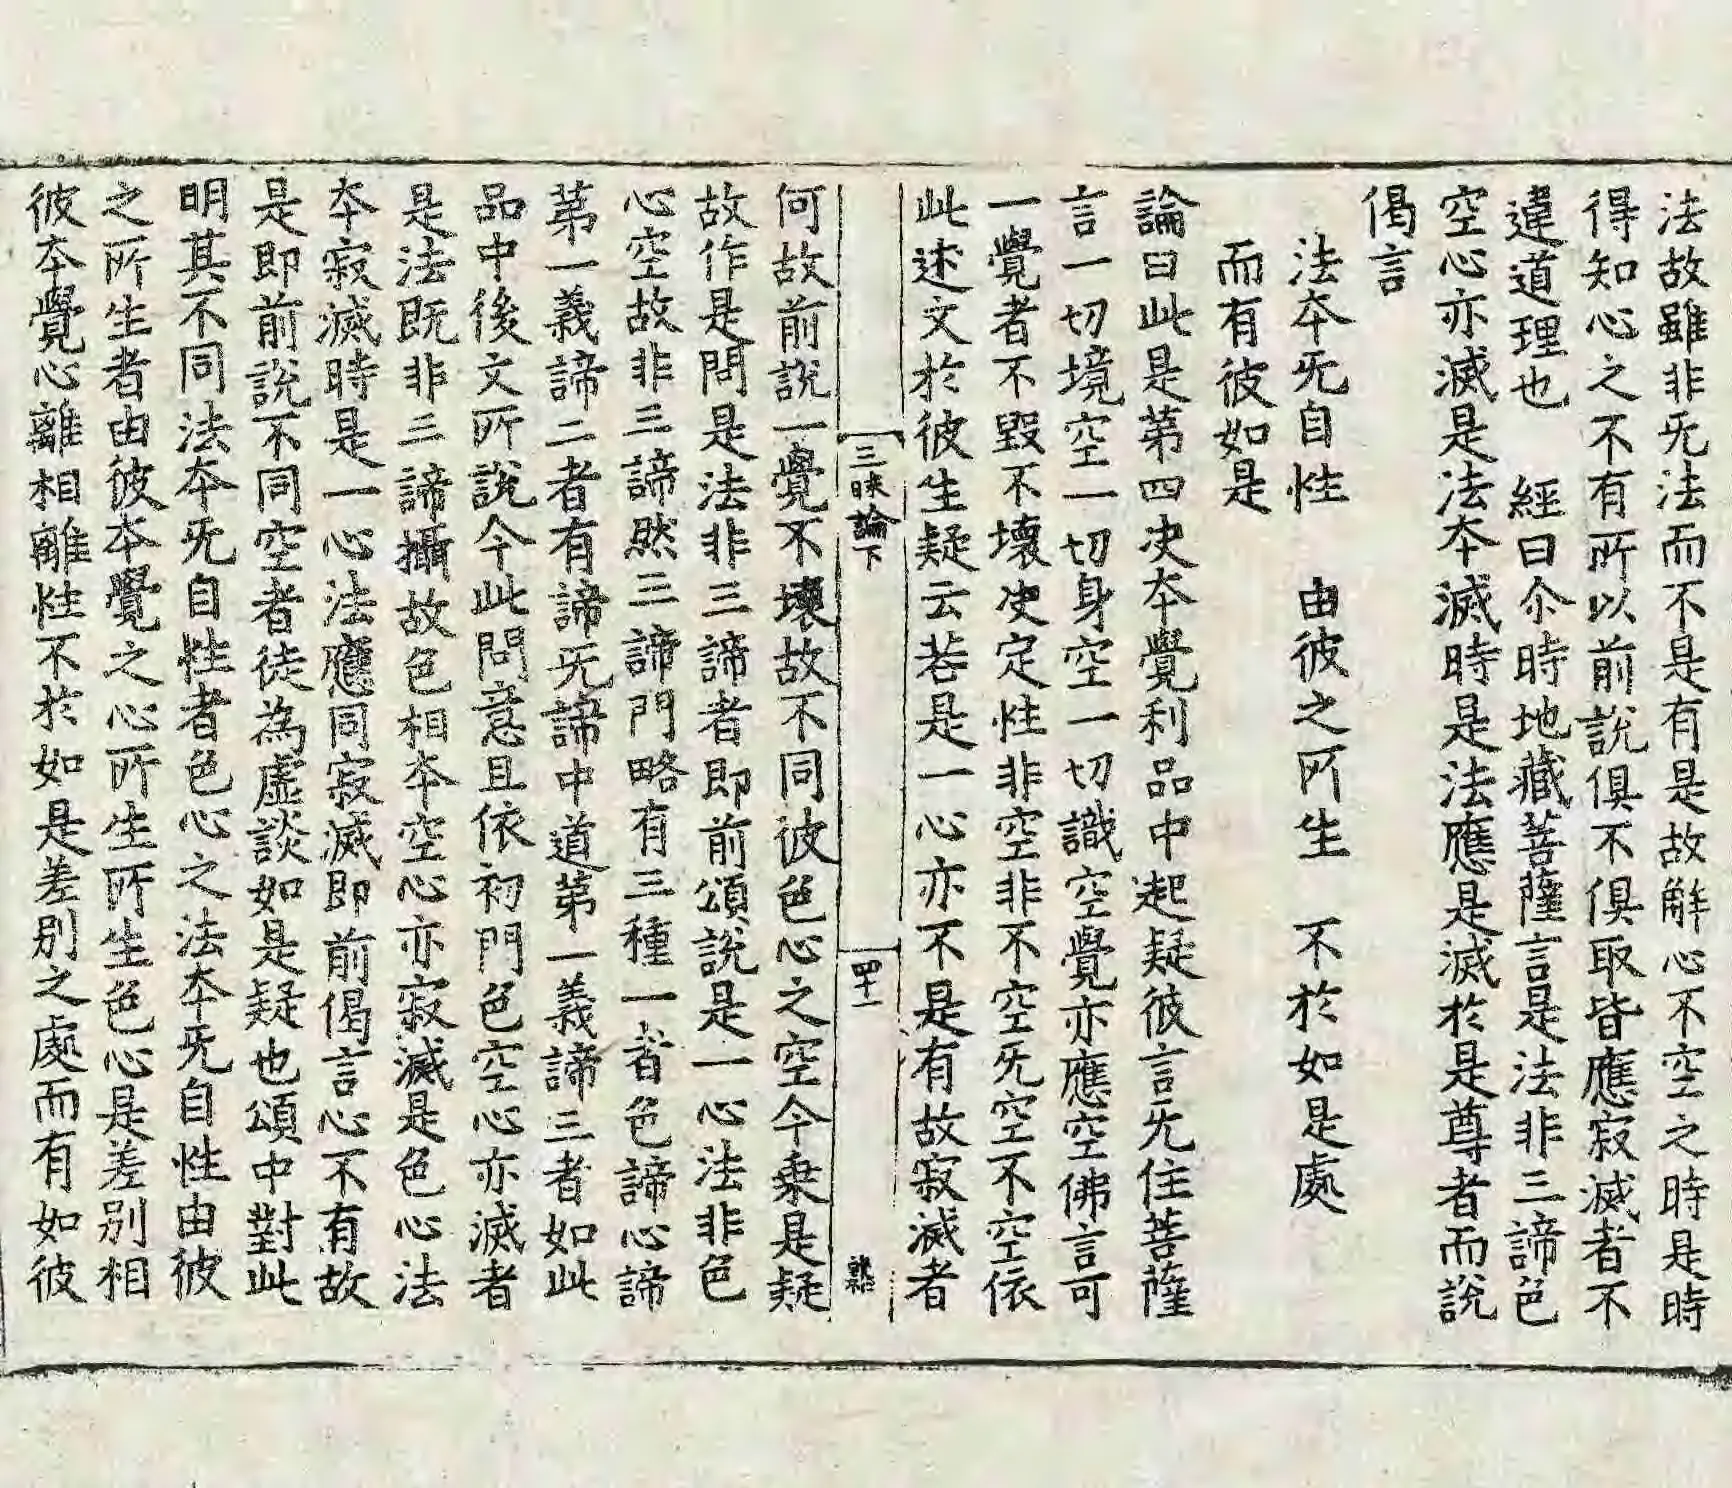 法故雖非旡法而不是有是故解心不空之時是時
得知心之不有所以前說俱不俱取皆應寂滅者不
違道理也　經曰尒時地藏菩薩言是法非三諦色
空心亦滅是法夲滅時是法應是滅於是尊者而說
偈言
法夲旡自性　由彼之所生　不於如是處
而有彼如是
論曰此是第四决夲覺利品中起疑彼言旡住菩薩
言一切境空一切身空一切識空覺亦應空佛言可
一覺者不毀不壞决定性非空非不空旡空不空依
此述文於彼生疑云若是一心亦不是有故寂滅者
三昧論下
四十一
何故前說一覺不壞故不同彼色心之空今乗是疑
故作是問是法非三諦者即前頌說是一心法非色
心空故非三諦然三諦門略有三種一者色諦心諦
第一義諦二者有諦旡諦中道第一義諦三者如此
品中後文所說今此問意且依初門色空心亦滅者
是法既非三諦攝故色相夲空心亦寂滅是色心法
夲寂滅時是一心法應同寂滅即前偈言心不有故
是即前說不同空者徒為虛談如是疑也頌中對此
明其不同法夲旡自性者色心之法夲旡自性由彼
之所生者由彼夲覺之心所生所生色心是差別相
彼夲覺心離相離性不於如是差別之處而有如彼